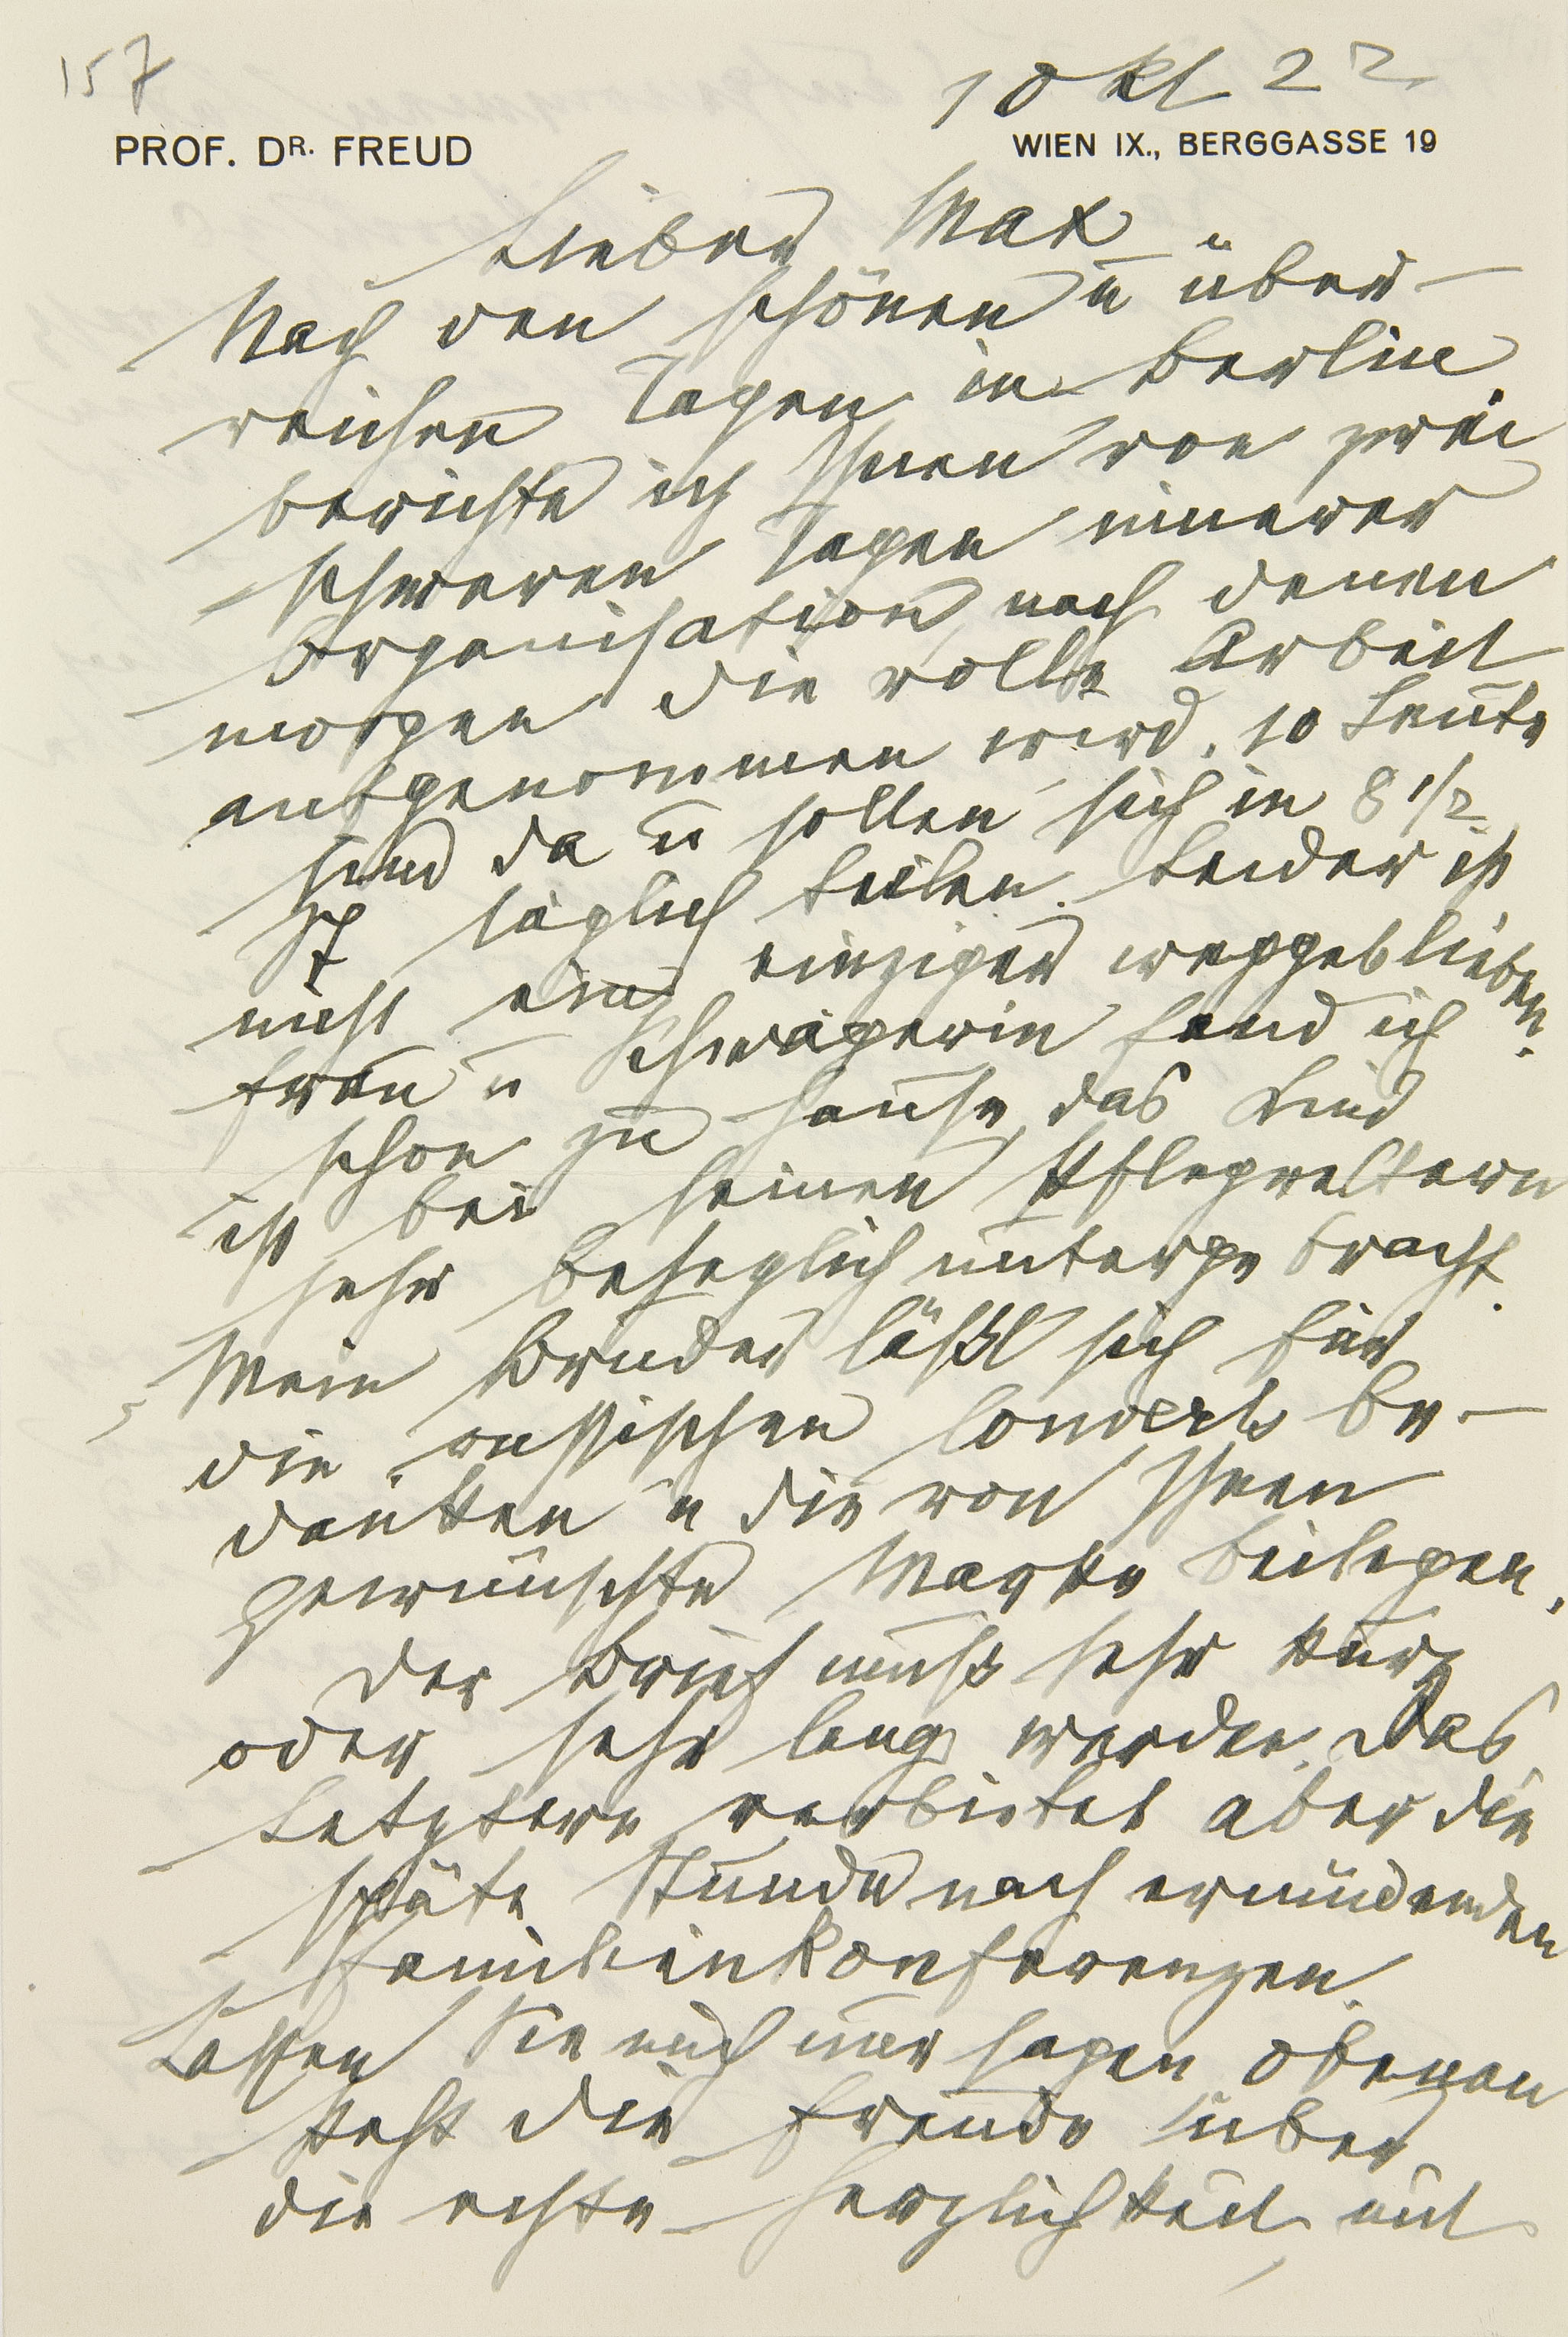 157
1 Okt 22
PROF. DR. FREUD
WIEN IX., BERGGASSE 19
Lieber Max
Nach den schönen u über-
reichen Tagen in Berlin
berichte ich Ihnen von zwei
schweren Tagen innerer
Organisation, nach denen
morgen die volle Arbeit
aufgenommen wird. 10 Leute
sind da u sollen sich in 8 1/2
St täglich teilen. Leider ist
nicht ein einziger weggeblieben.
Frau u Schwägerin fand ich
schon zu Hause, das Kind
ist bei seinen Pflegeeltern
sehr behaglich untergebracht.
Mein Bruder läßt sich für
die russischen Couverts be-
danken u die von Ihnen
gewünschte Marke beilegen.
Der Brief muß sehr kurz
oder sehr lang werden. Das
Letztere verbietet aber die
späte Stunde nach ermüdenden
Familienkonferenzen.
Lassen Sie mich nur sagen obenan
steht die Freude über
die echte Herzlichkeit mit